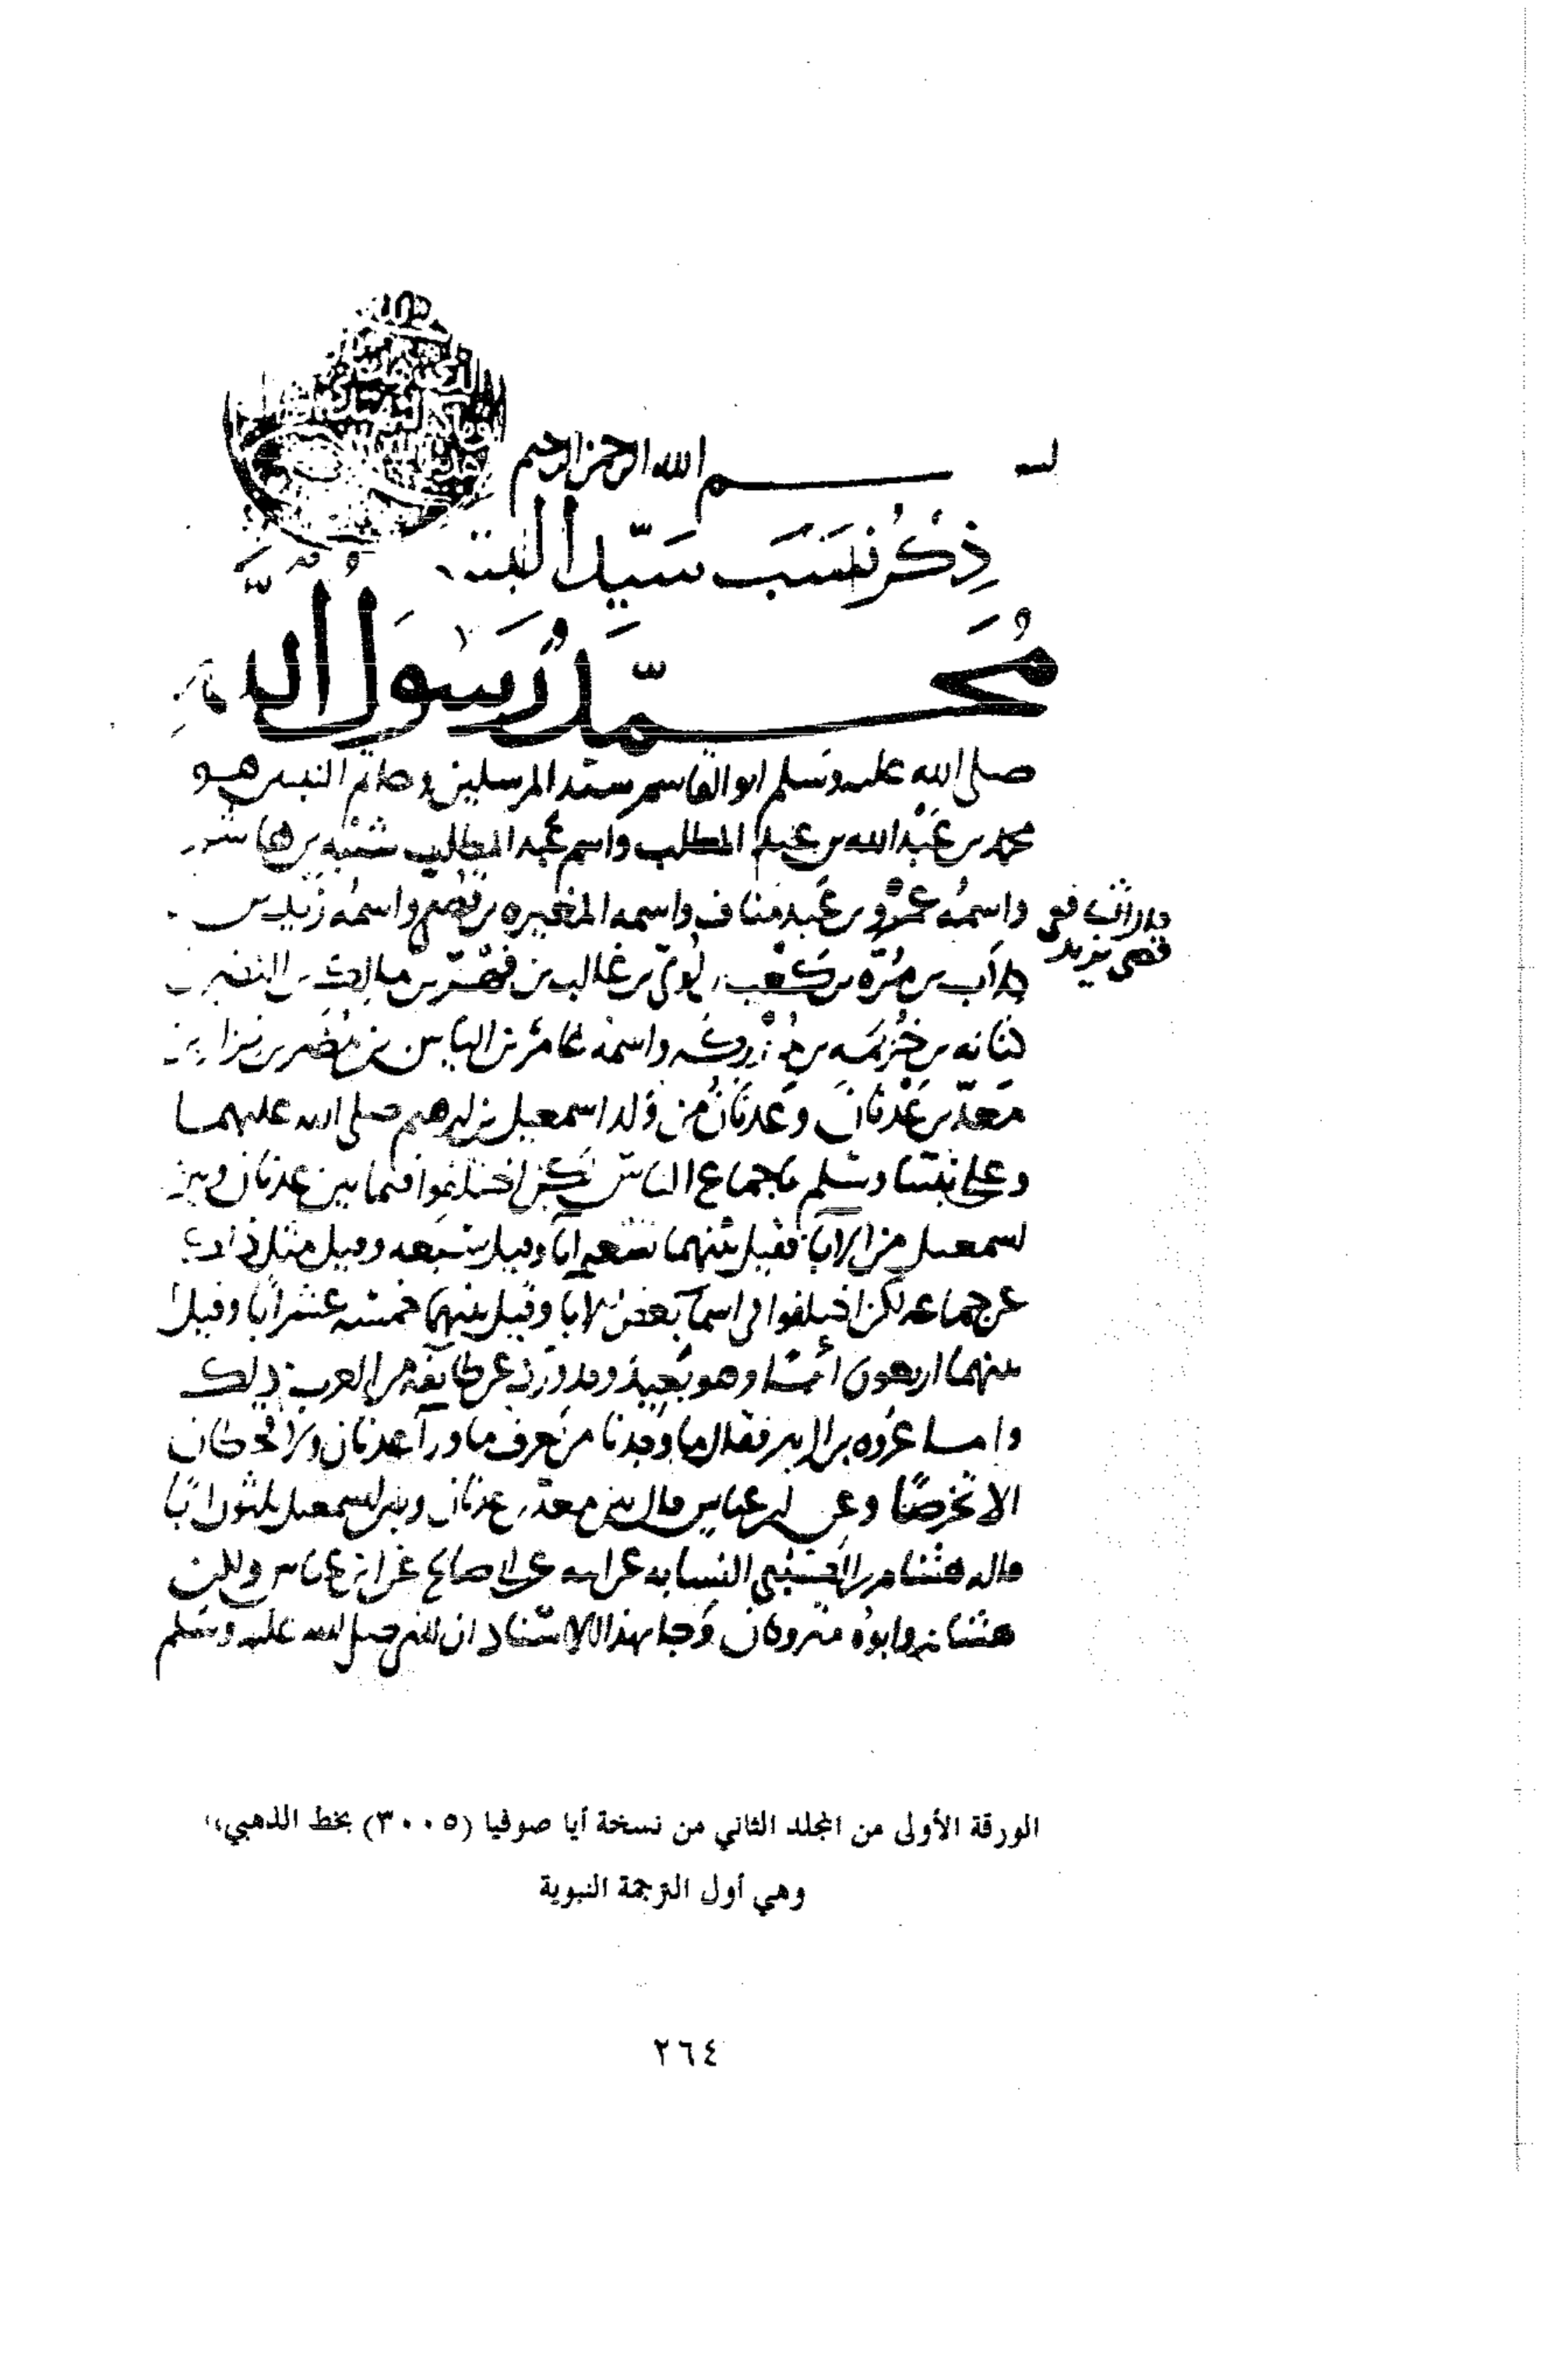 بسم الله الرحمن الرحيم
ذِكْرُ نَسَب سَيّد البشر
مُحَمَّد رَسُول الله
صلى الله عليه وسلم ابو القاسم سيد المرسلين وخاتم النبيين هو
محمد بن عَبْد الله بن عبد المطلب واسم عبد المطلب شَيْبه بن هاشم
واسمُه عَمْرو بن عَبد مناف واسمه المغيره بن قُصَي واسمُه زَيْد بن
قصي يزيد
كلاب بن مُرّه بن كَعْب بن لُؤيّ بن غالب بن فِهْر بن مالك بن النضر بن
كنانه بن خُزَيمه بن مُدْركه واسمه عامر بن الياس بن مُضَر بن نزار بن
مَعَدّ بن عَدْنان وعَدنان من وَلد اسمعيل بن ابرهيم صلى الله عليهما
وعلى نبينا وسلم باجماع الناس لكن اختلفوا فيما بين عدنان وبين
اسمعيل من الآبا فقيل بينهما تسعه ابا وقيل سَبعه وقيل مثل ذلك
عن جماعه لكن اختلفوا في اسما بَعض الابا وقيل بينهما خمسه عشر ابا وقيل
بينهما اربعون أبا وهو بَعيد وقد وَرَد عن طايفه من العرب ذلك
واما عُرْوه بن الزبير فقال ما وَجدنا من يَعرف ما ورآ عدنان ولا قحطان
الا تَخرصًا وعن ابن عباس قال بين معد بن عدنان وبين اسمعيل ثلثون ابا
قاله هشام بن الكلبي النسابه عن ابيه عن ابي صالح عن ابن عباس ولكن
هشام وابوه متروكان وَجا بهذا الاسناد ان النبي صلى الله عليه وسلم
الورقة الأولى من المجلد الثاني من نسخة أيا صوفيا (٣٠٠٥) بخط الذهبي،
وهي أول الترجمة النبوية
٢٦٤